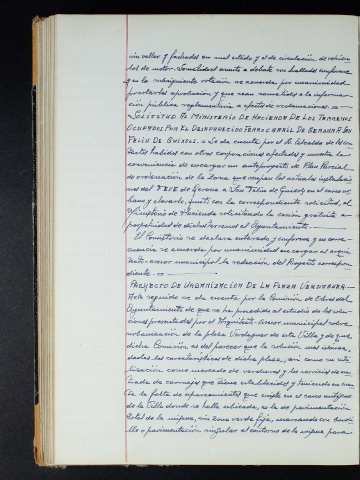 sin vallar y fachadas en mal estado y el de circulación de vehícu-
los de motor. Sometidos a debate son hallados conforme
y en la subsiguiente votación se acuerda por unanimidad
prestarles aprobación y que sean sometidos a la informa-
ción pública reglamentaria a efectos de reclamaciones. =
= SOLICITUD AL MINISTERIO DE HACIENDA DE LOS TERRENOS
OCUPADOS POR EL DESAPARECIDO FERROCARRIL DE GERONA A SAN
FELIU DE GUIXOLS. = Se da cuenta por el Sr. Alcalde de los con-
tactos habidos con otras corporaciones afectadas y muestra la
conveniencia de encargar un anteproyecto de Plan Parcial
de ordenación de la zona que ocupan las actuales instalacio-
nes del FEVE de Gerona a San Feliu de Guixols en el casco ur-
bano y elevarlo, junto con la correspondiente solicitud, al
Ministerio de Hacienda solicitando la cesión gratuita a
perpetuidad de dichos terrenos al Ayuntamiento.
El Consistorio se declara enterado y conforme y en conse-
cuencia se acuerda por unanimidad encargar al arqui-
tecto-asesor municipal la redacción del Proyecto correspon-
diente. =
PROYECTO DE URBANIZACION DE LA PLAZA VERDAGUER. =
Acto seguido se da cuenta por la Comisión de Obras del
Ayuntamiento de que se ha procedido al estudio de las solu-
ciones presentadas por el Arquitecto-asesor municipal sobre
urbanización de la plaza Verdaguer de esta Villa y de que
dicha Comisión, es del parecer que la solución más idónea,
dadas las características de dicha plaza, así como su uti-
lización como mercado de verduras y los servicios de en-
trada de carruajes que tiene establecidos y teniendo en cuen-
ta la falta de aparcamientos que existe en el casco antiguo
de la Villa donde se halla ubicada, es la de pavimentación
total de la misma, sin zona verde fija, marcando con bordi-
llo o pavimentación singular el entorno de la misma para